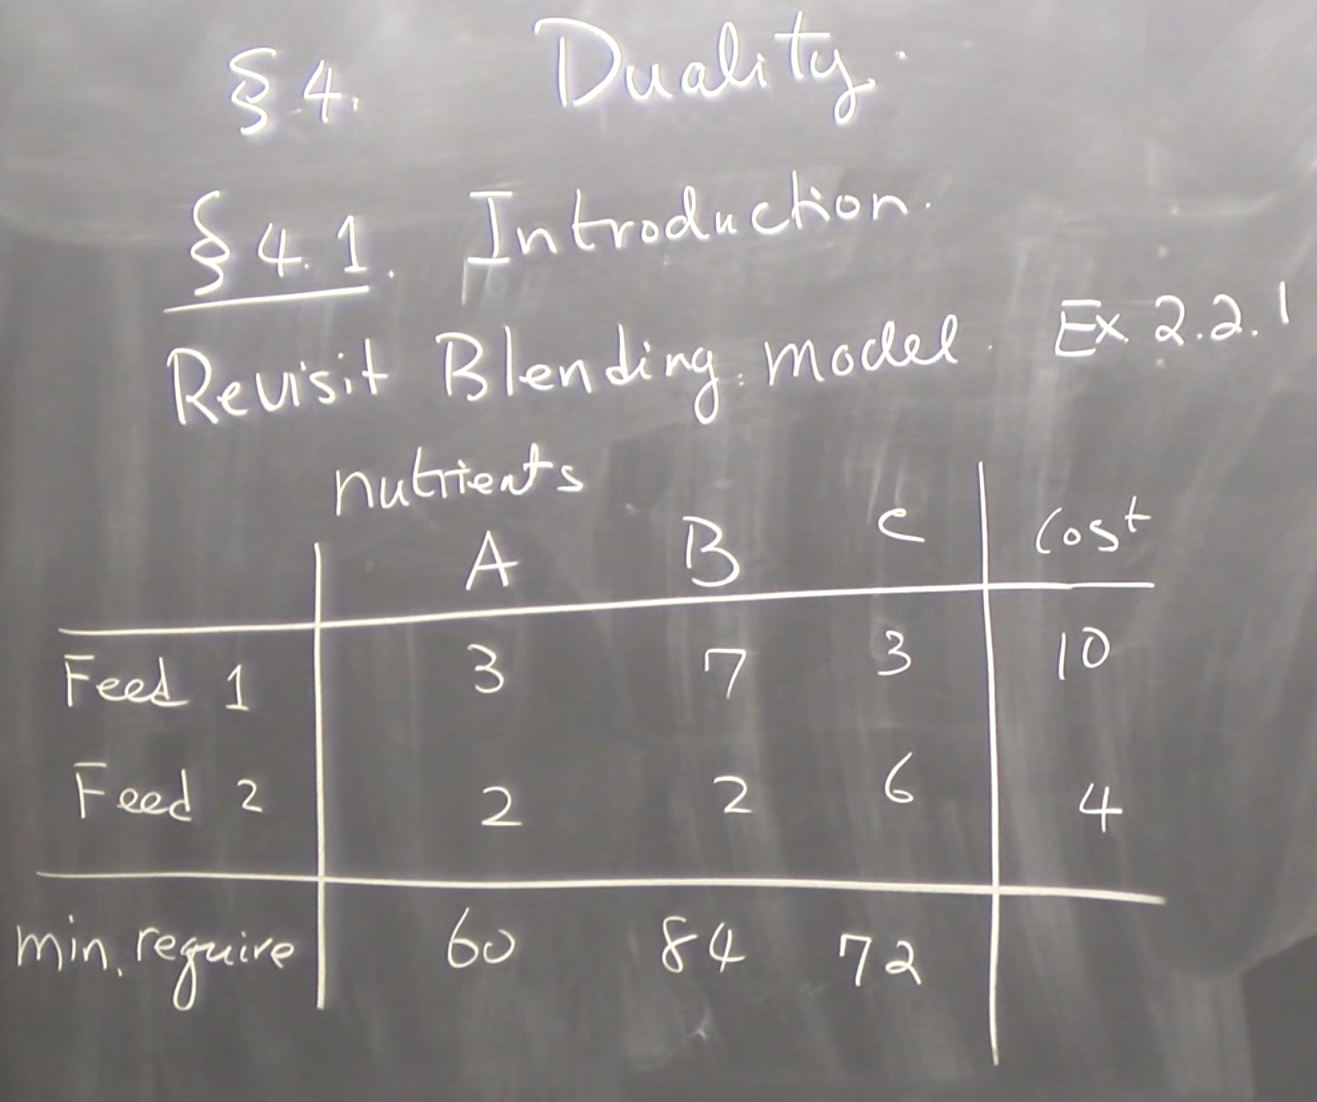 § 4. Duality.
§ 4.1. Introduction.
Revisit Blending model. Ex. 2.2.1
nutrients
A B C Cost
Feed 1 3 7 3 10
Feed 2 2 2 6 4
min. require 60 84 72